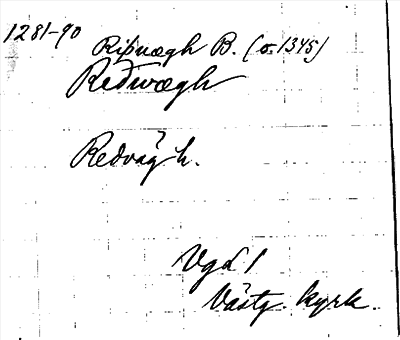 1281-90
Riþwægh B. (o. 1345)
Redwægh
Redvägh.
Vgd 1
Västg. kyrk.